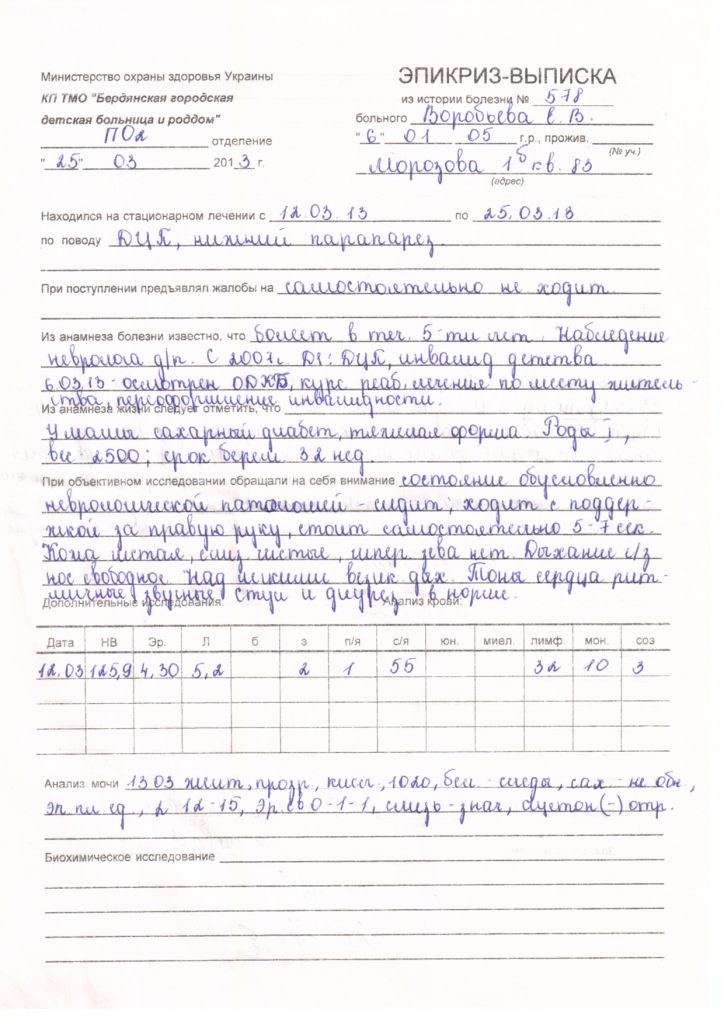 Министерство охраны здоровья Украины
КП ТМО "Бердянская городская
детская больница и роддом"
ПО2 отделение
"25" 03 2013 г.
ЭПИКРИЗ-ВЫПИСКА
из истории болезни № 578
больного Воробьева Е. В.
"6" 01 05 г.р., прожив.
(№ уч.)
Морозова 1б кв. 83
(адрес)
Находился на стационарном лечении с 12.03.13 по 25.03.13
по поводу ДЦП, нижний парапарез
При поступлении предъявлял жалобы на самостоятельно не ходит
Из анамнеза болезни известно, что болеет в теч. 5-ти лет. Наблюдение
невролога д/п. С 2007г. DS: ДЦП, инвалид детства
6.03.13 - осмотрен ОДКБ, курс реаб. лечения по месту житель-
ства, переоформление инвалидности.
Из анамнеза жизни следует отметить, что
У мамы сахарный диабет, тяжелая форма Роды I,
вес 2500; срок берем 32 нед.
При объективном исследовании обращали на себя внимание состояние обусловленно
неврологической патологией - сидит, ходит с поддер-
жкой за правую руку, стоит самостоятельно 5-7 сек.
Кожа чистая, слиз чистые, гипер. зева нет. Дыхание ч/з
нос свободное. Над легкими везик дых. Тоны сердца рит-
мичные звучные Стул и диурез в норме.
Дополнительные исследования: Анализ крови:
Дата НВ Эр. Л б э п/я с/я юн. миел. лимф. мон. соэ
12.03 125,9 4,30 5,2 2 1 55 32 10 3
Анализ мочи 13.03 желт, прозр, кисл, 1020, бел - следы, сах - не обн.,
эп. пл. ед., L 12-15, Эр. св 0-1-1, слизь - знач, ацетон (-) отр.
Биохимическое исследование